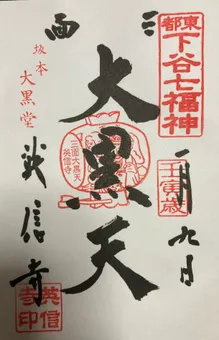 東都
下谷七福神
壬寅歳
一月九日
三面
大黒天
三面大黒天
英信寺
坂本
大黒堂
英信寺
英信寺印